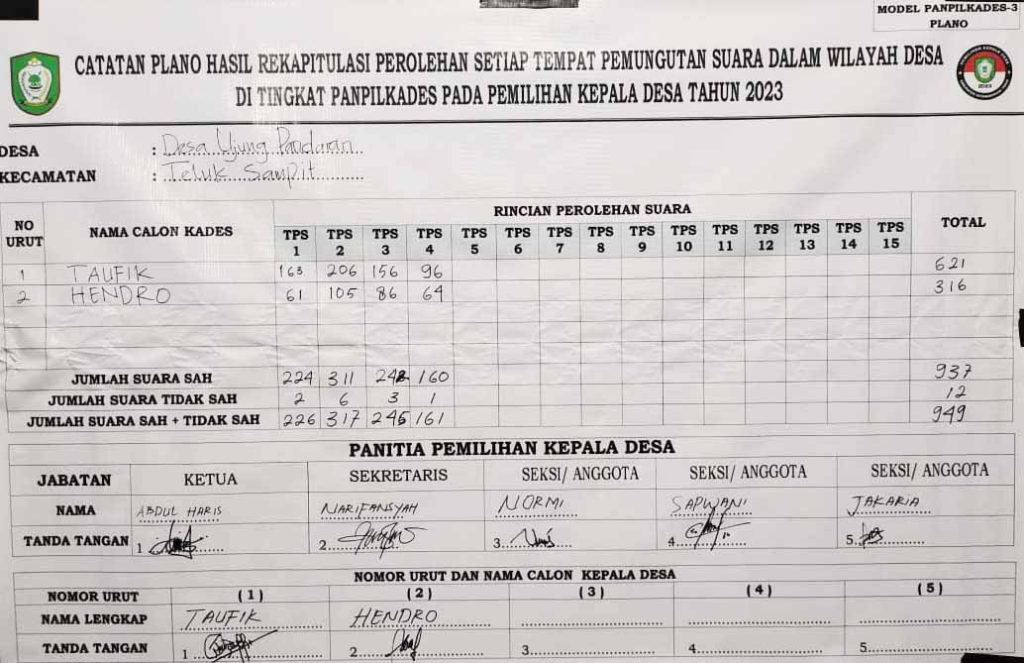 MODEL PANPILKADES-3
PLANO
CATATAN PLANO HASIL REKAPITULASI PEROLEHAN SETIAP TEMPAT PEMUNGUTAN SUARA DALAM WILAYAH DESA
DI TINGKAT PANPILKADES PADA PEMILIHAN KEPALA DESA TAHUN 2023
DESA : Desa Ujung Pandaran
KECAMATAN : Teluk Sampit
NO URUT NAMA CALON KADES RINCIAN PEROLEHAN SUARA TOTAL
TPS 1 TPS 2 TPS 3 TPS 4 TPS 5 TPS 6 TPS 7 TPS 8 TPS 9 TPS 10 TPS 11 TPS 12 TPS 13 TPS 14 TPS 15
1 TAUFIK 163 206 156 96 621
2 HENDRO 61 105 86 64 316
JUMLAH SUARA SAH 224 311 242 160 937
JUMLAH SUARA TIDAK SAH 2 6 3 1 12
JUMLAH SUARA SAH + TIDAK SAH 226 317 245 161 949
PANITIA PEMILIHAN KEPALA DESA
JABATAN KETUA SEKRETARIS SEKSI/ ANGGOTA SEKSI/ ANGGOTA SEKSI/ ANGGOTA
NAMA ABDUL HARIS NARIFANSYAH NORMI SAPWANI JAKARIA
TANDA TANGAN 1 2 3. 4. 5.
NOMOR URUT DAN NAMA CALON KEPALA DESA
NOMOR URUT (1) (2) (3) (4) (5)
NAMA LENGKAP TAUFIK HENDRO
TANDA TANGAN 1 2 3 4 5